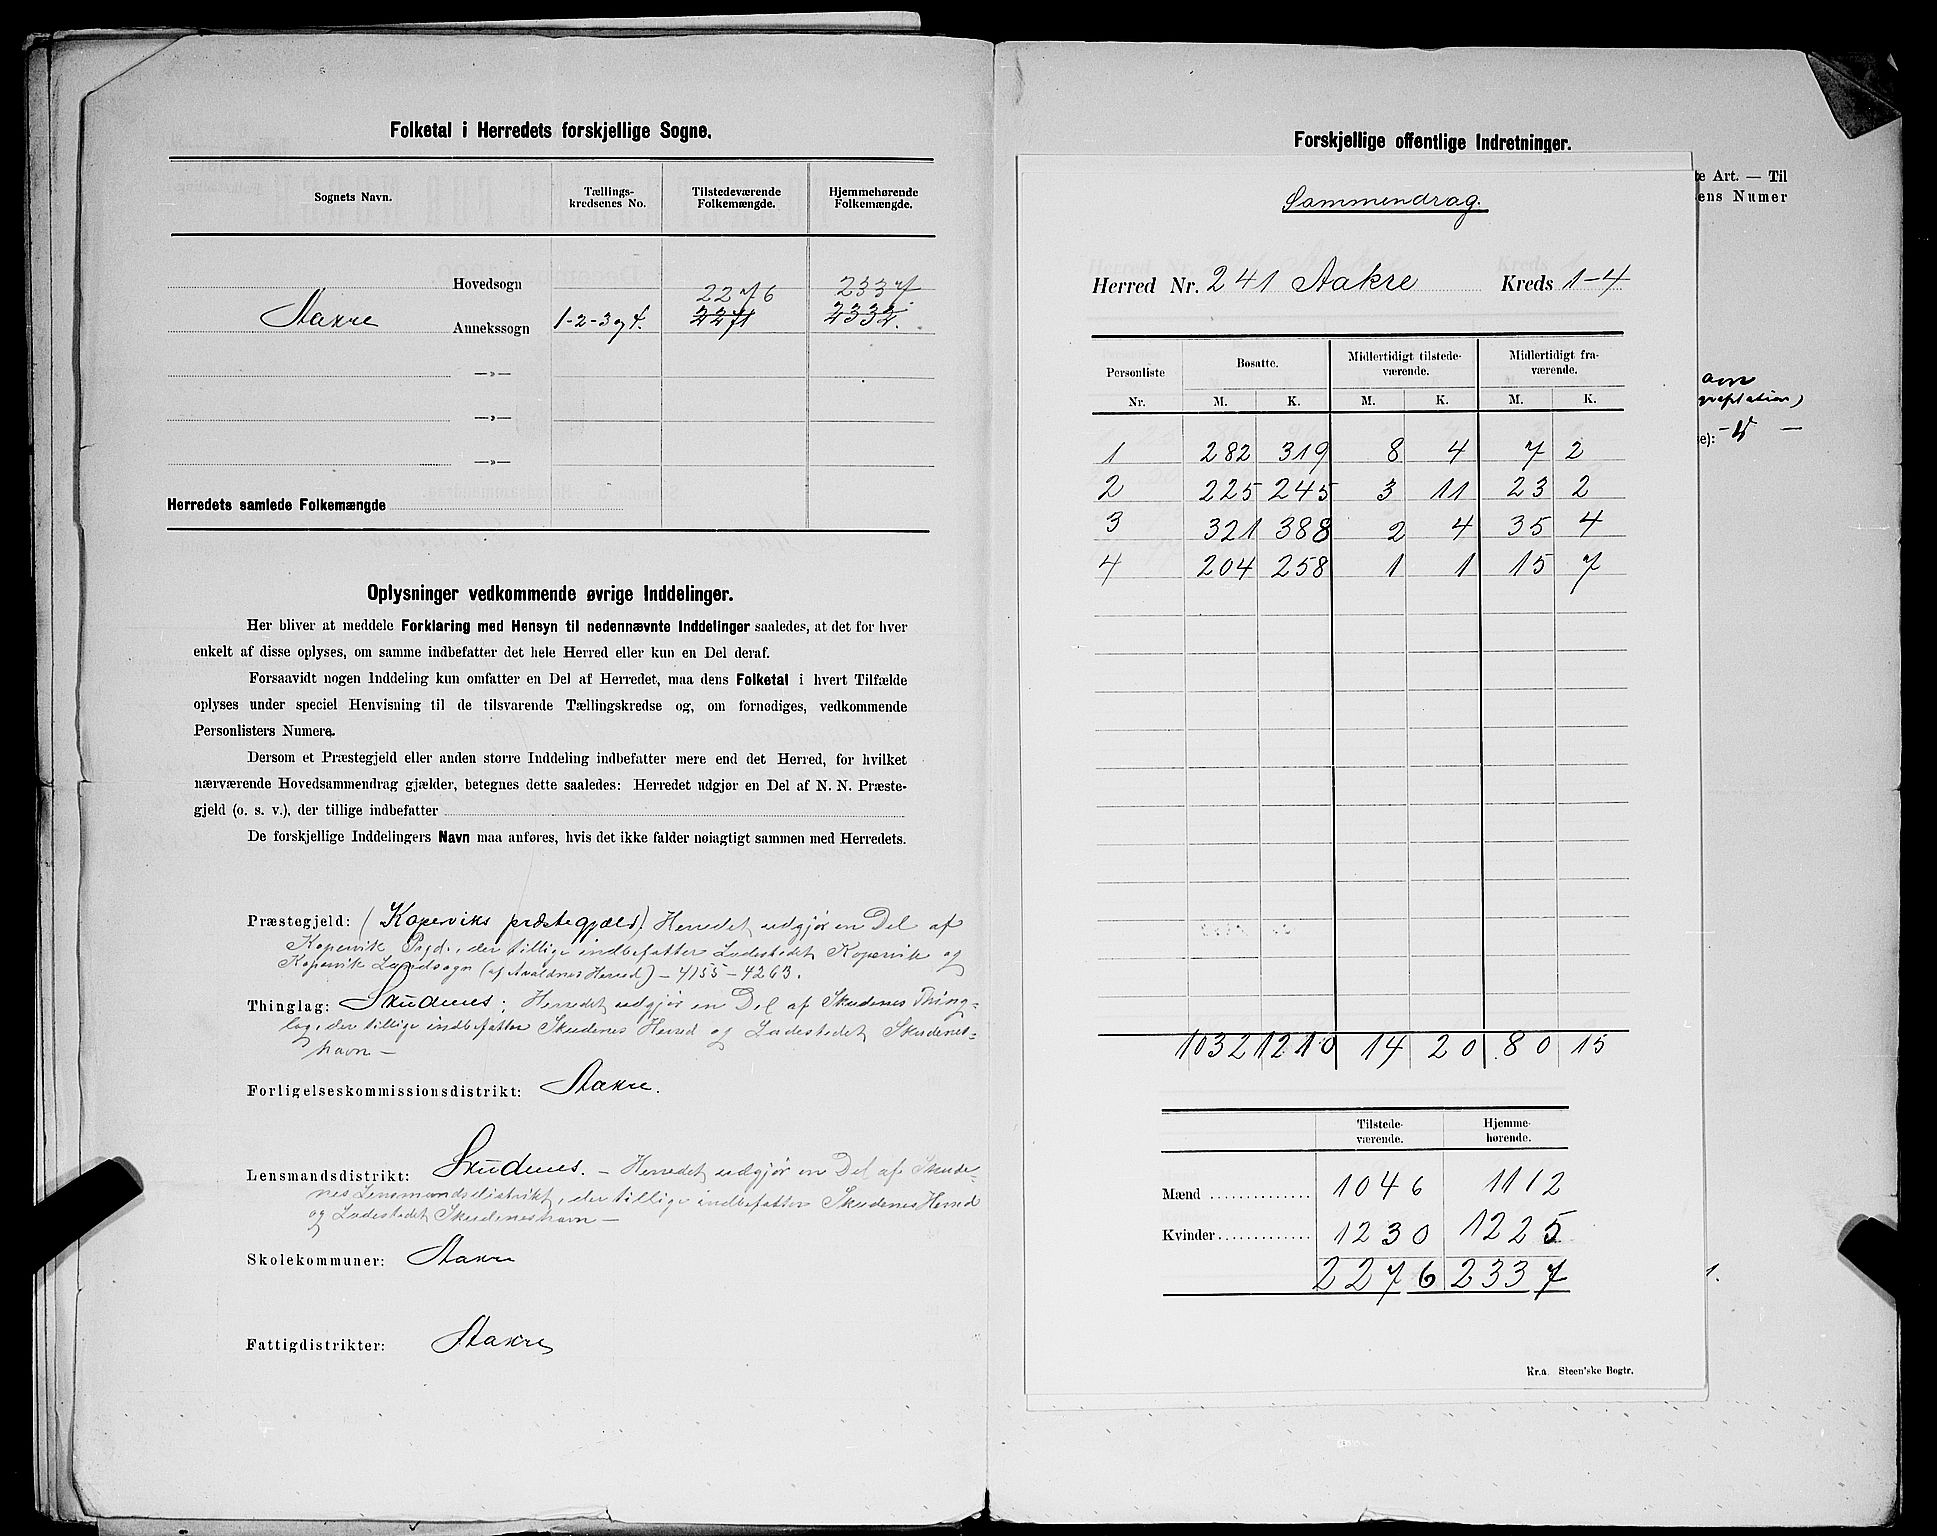 Folketal i Herredets forskjellige Sogne.
Sognets Navn. Tællings-kredsenes No. Tilstedeværende Folkemængde. Hjemmehørende Folkemængde.
Hovedsogn 2276 2337
Aakre Annekssogn 1-2-3 og 4. 2271 2332.
—»—
—»—
—»—
Herredets samlede Folkemængde
Oplysninger vedkommende øvrige Inddelinger.
Her bliver at meddele Forklaring med Hensyn til nedennævnte Inddelinger saaledes, at det for hver
enkelt af disse oplyses, om samme indbefatter det hele Herred eller kun en Del deraf.
Forsaavidt nogen Inddeling kun omfatter en Del af Herredet, maa dens Folketal i hvert Tilfælde
oplyses under speciel Henvisning til de tilsvarende Tællingskredse og, om fornødiges, vedkommende
Personlisters Numere.
Dersom et Præstegjeld eller anden større Inddeling indbefatter mere end det Herred, for hvilket
nærværende Hovedsammendrag gjælder, betegnes dette saaledes: Herredet udgjør en Del af N. N. Præste-
gjeld (o. s. v.), der tillige indbefatter
De forskjellige Inddelingers Navn maa anføres, hvis det ikke falder nøiagtigt sammen med Herredets.
Præstegjeld: (Koperviks præstegjæld) Herredet udgjør en Del af
Kopervik Pgd., der tillige indbefatter Ladestedet Kopervik og
Kopervik Landsogn (af Avaldsnes Herred) – 4155 – 4263.
Thinglag: Skudenes; Herredet udgjør en Del af Skudenes Thing-
lag, der tillige indbefatter Skudenes Herred og Ladestedet Skudenes-
havn –
Forligelseskommissionsdistrikt: Aakre.
Lensmandsdistrikt: Skudenes. – Herredet udgjør en Del af Skude-
nes Lensmandsdistrikt, der tillige indbefatter Skudenes Herred
og Ladestedet Skudeneshavn –
Skolekommuner: Aakre
Fattigdistrikter: Aakre
Forskjellige offentlige Indretninger.
te Art. — Til
ens Numer
se): – 5 –
1.
Sammendrag.
Herred Nr. 241 Aakre Kreds 1-4
Personliste Bosatte. Midlertidigt tilstede-værende. Midlertidigt fra-værende.
Nr. M. K. M. K. M. K.
1 282 319 8 4 7 2
2 225 245 3 11 23 2
3 321 388 2 4 35 4
4 204 258 1 1 15 7
1032 1210 14 20 80 15
Tilstede-værende. Hjemme-hørende.
Mænd 1046 1112
Kvinder 1230 1225
2276 2337
Kr.a. Steen'ske Bogtr.